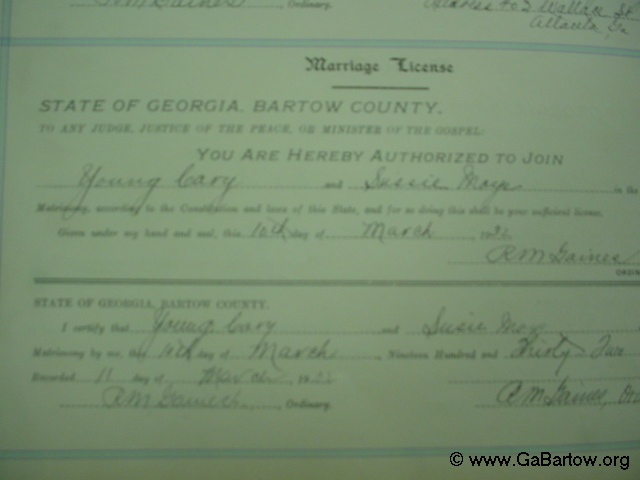 R M Gaines, Ordinary.
Wallace St
Atlanta, Ga
Marriage License
STATE OF GEORGIA, BARTOW COUNTY.
TO ANY JUDGE, JUSTICE OF THE PEACE, OR MINISTER OF THE GOSPEL:
YOU ARE HEREBY AUTHORIZED TO JOIN
Young Cary and Sussie in the
Matrimony, according to the Constitution and laws of this State, and for so doing this shall be your sufficient license.
Given under my hand and seal, this 10th day of March, 1932
R M Gaines
ORDIN
STATE OF GEORGIA, BARTOW COUNTY.
I certify that Young Cary and Susie
Matrimony by me, this 10th day of March, Nineteen Hundred and Thirty Two
Recorded 11 day of March, 19
R M Gaines, Ordinary.
R M Gaines, Or
© www.GaBartow.org